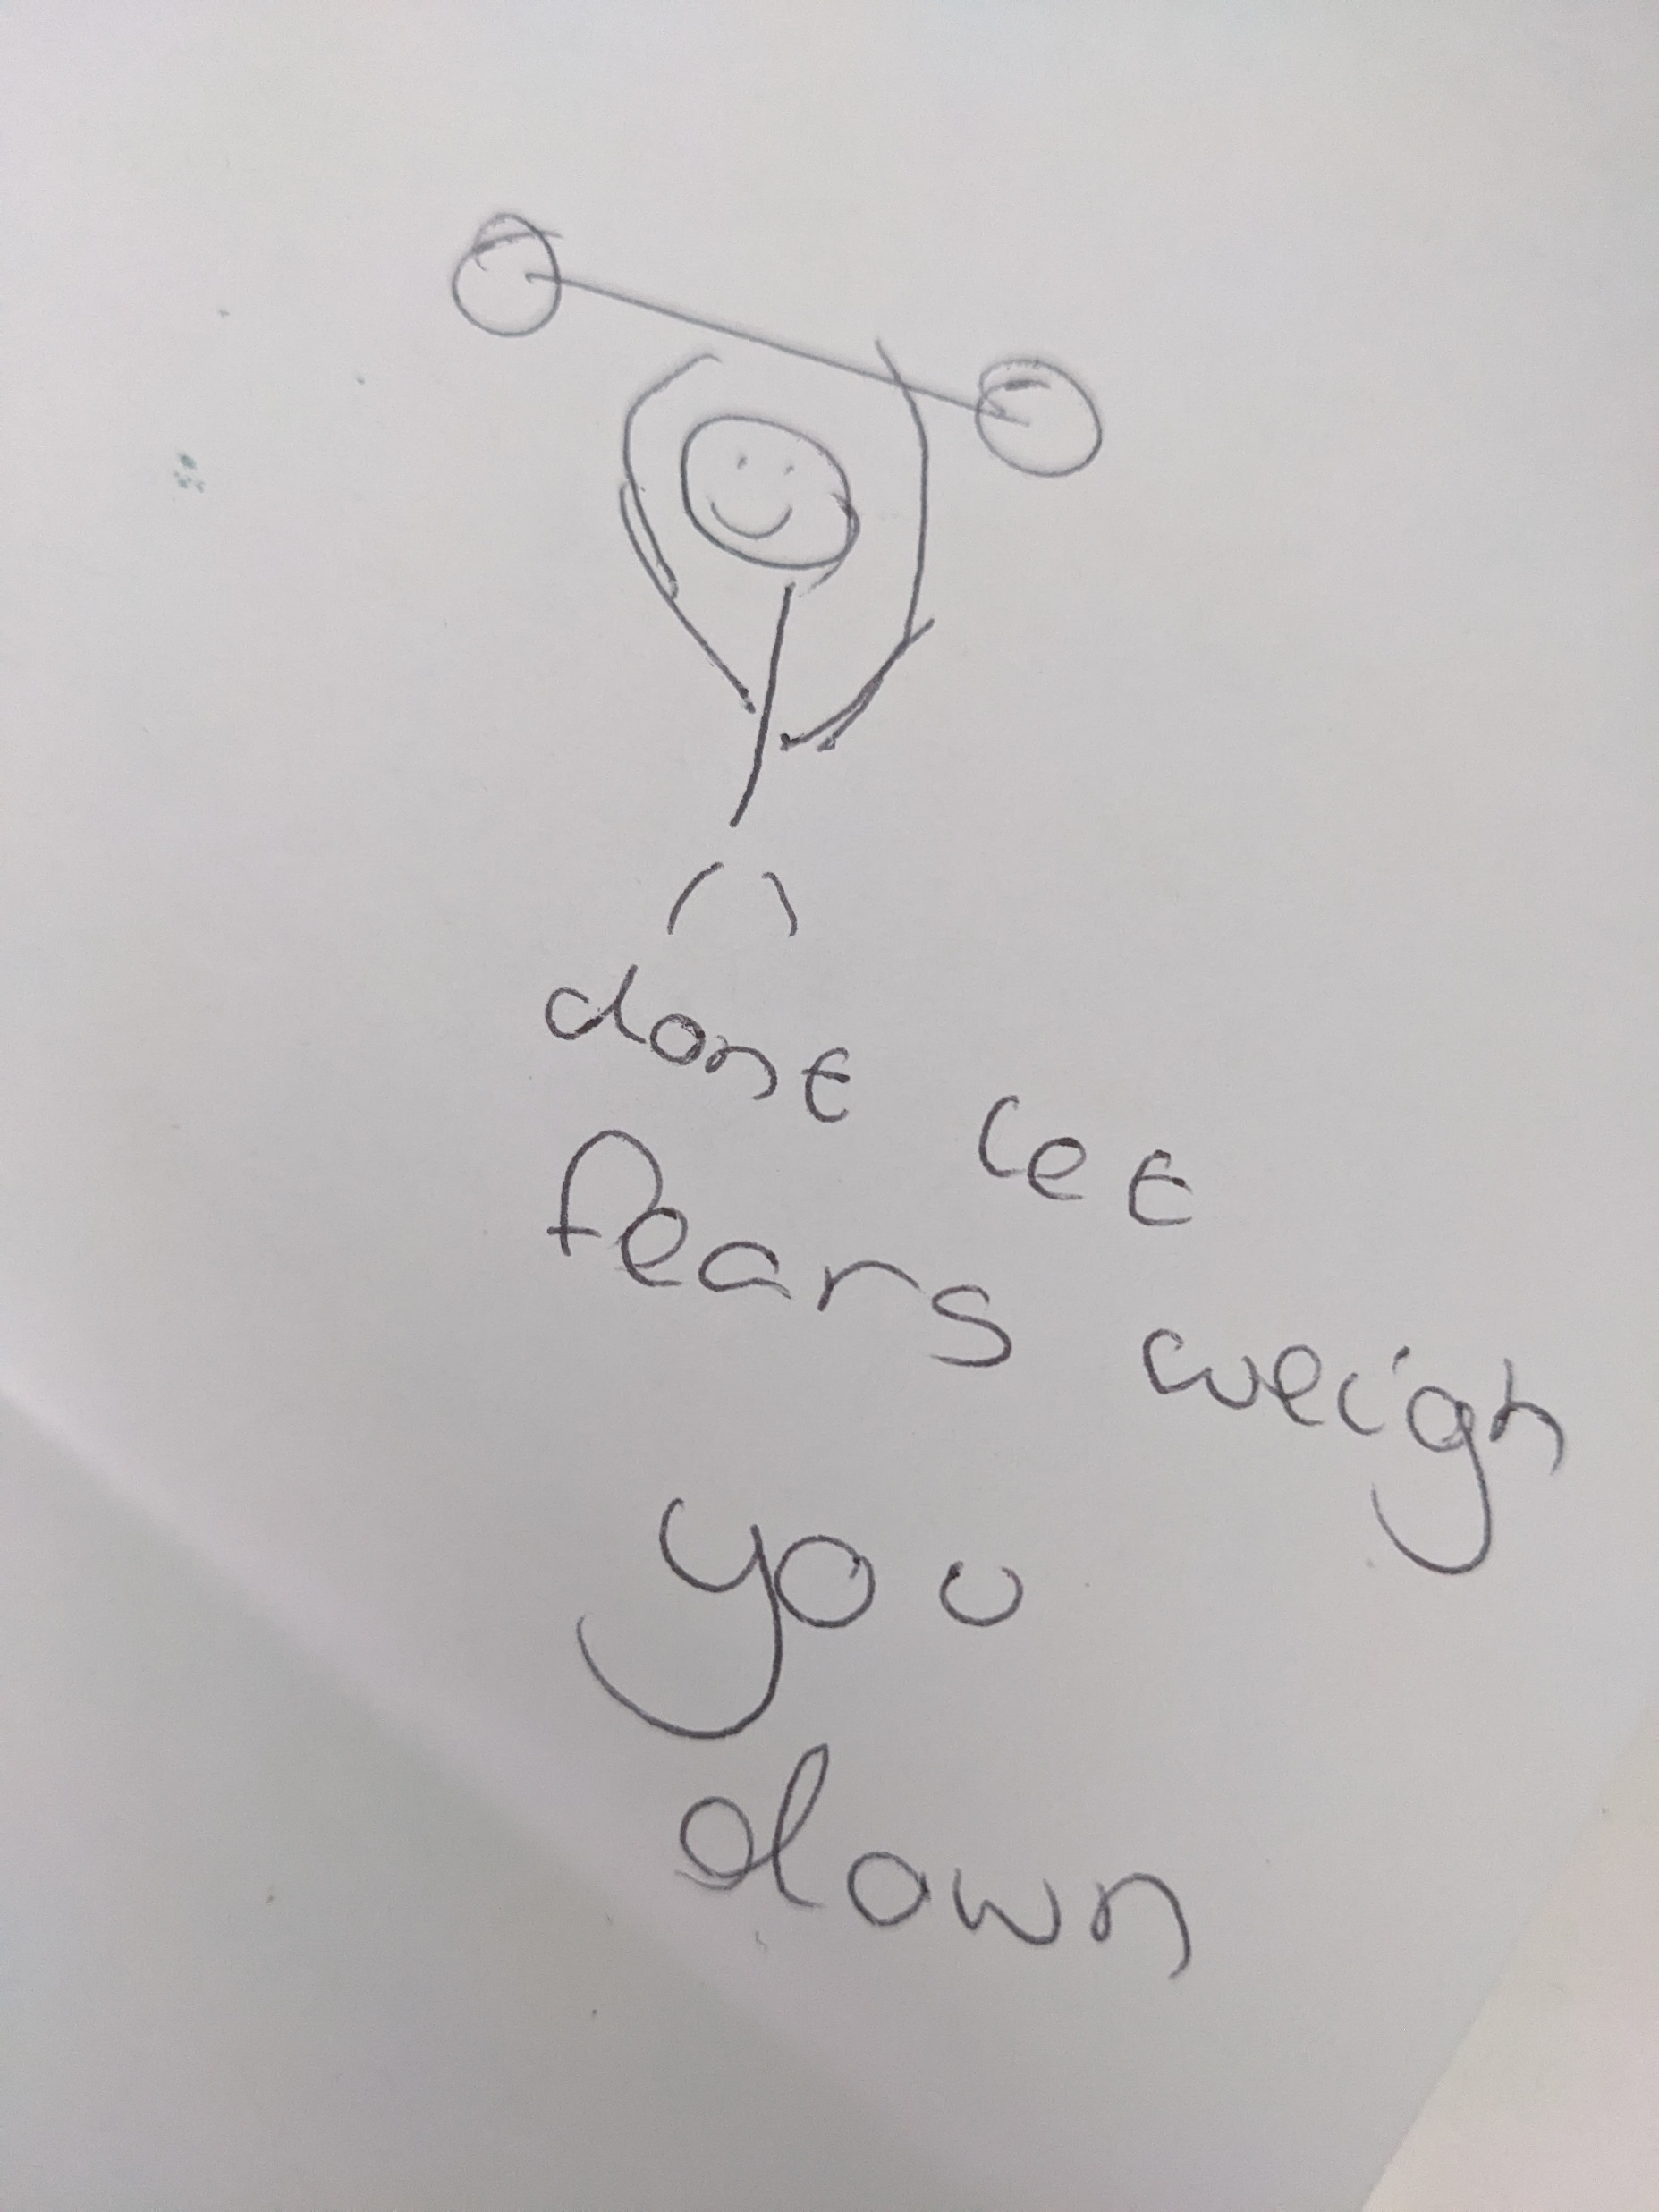 dont let
fears weigh
you
down